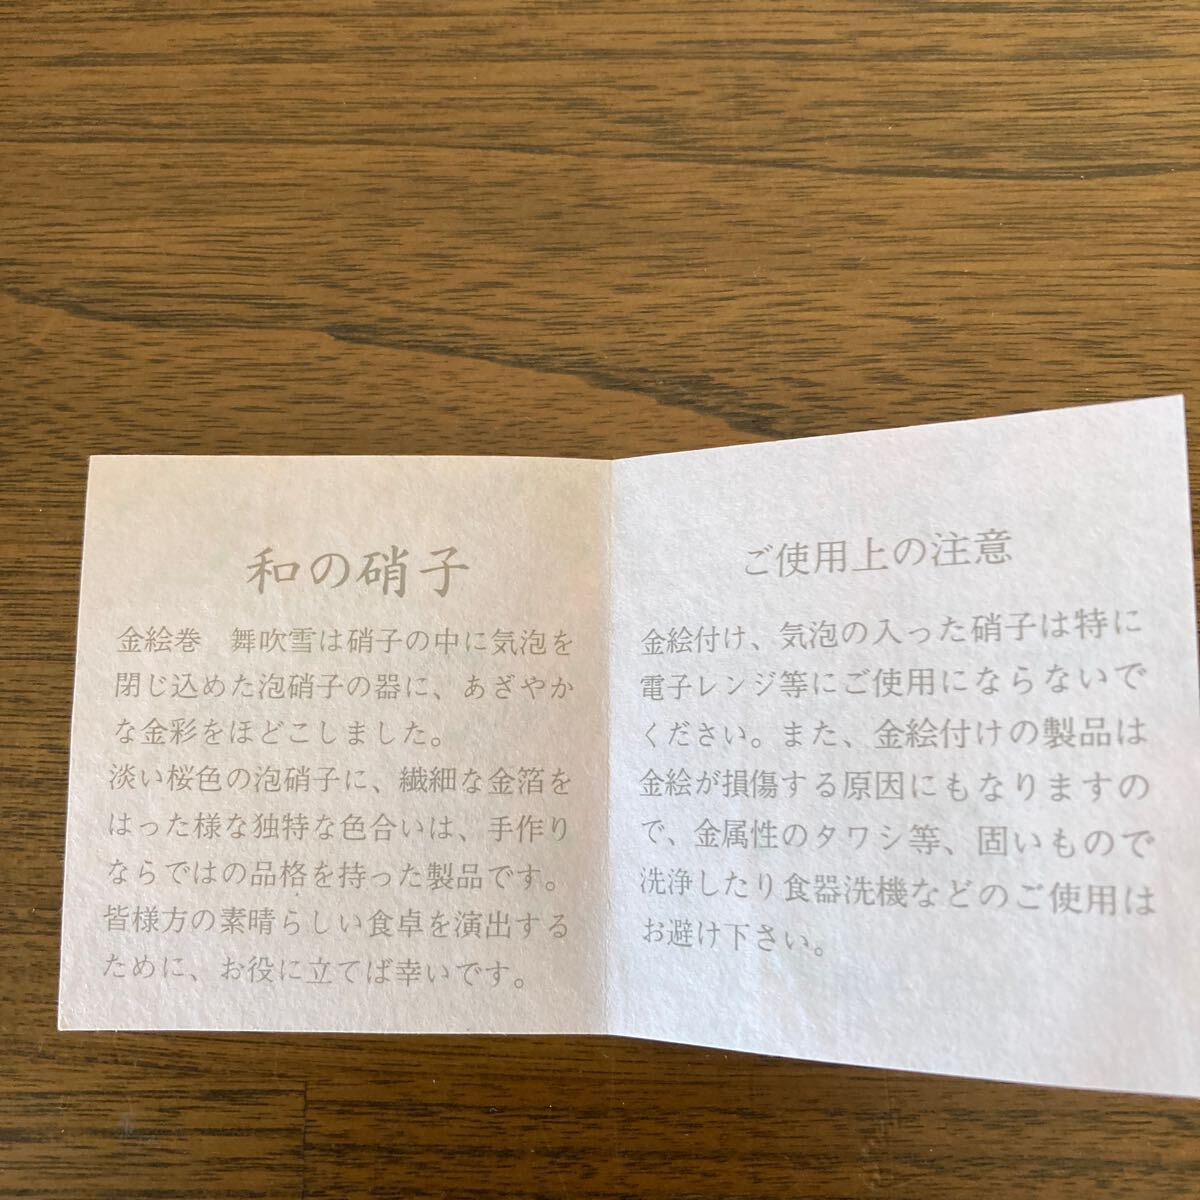 和の硝子
金絵巻　舞吹雪は硝子の中に気泡を
閉じ込めた泡硝子の器に、あざやか
な金彩をほどこしました。
淡い桜色の泡硝子に、繊細な金箔を
はった様な独特な色合いは、手作り
ならではの品格を持った製品です。
皆様方の素晴らしい食卓を演出する
ために、お役に立てば幸いです。
ご使用上の注意
金絵付け、気泡の入った硝子は特に
電子レンジ等にご使用にならないで
ください。また、金絵付けの製品は
金絵が損傷する原因にもなりますの
で、金属性のタワシ等、固いもので
洗浄したり食器洗機などのご使用は
お避け下さい。